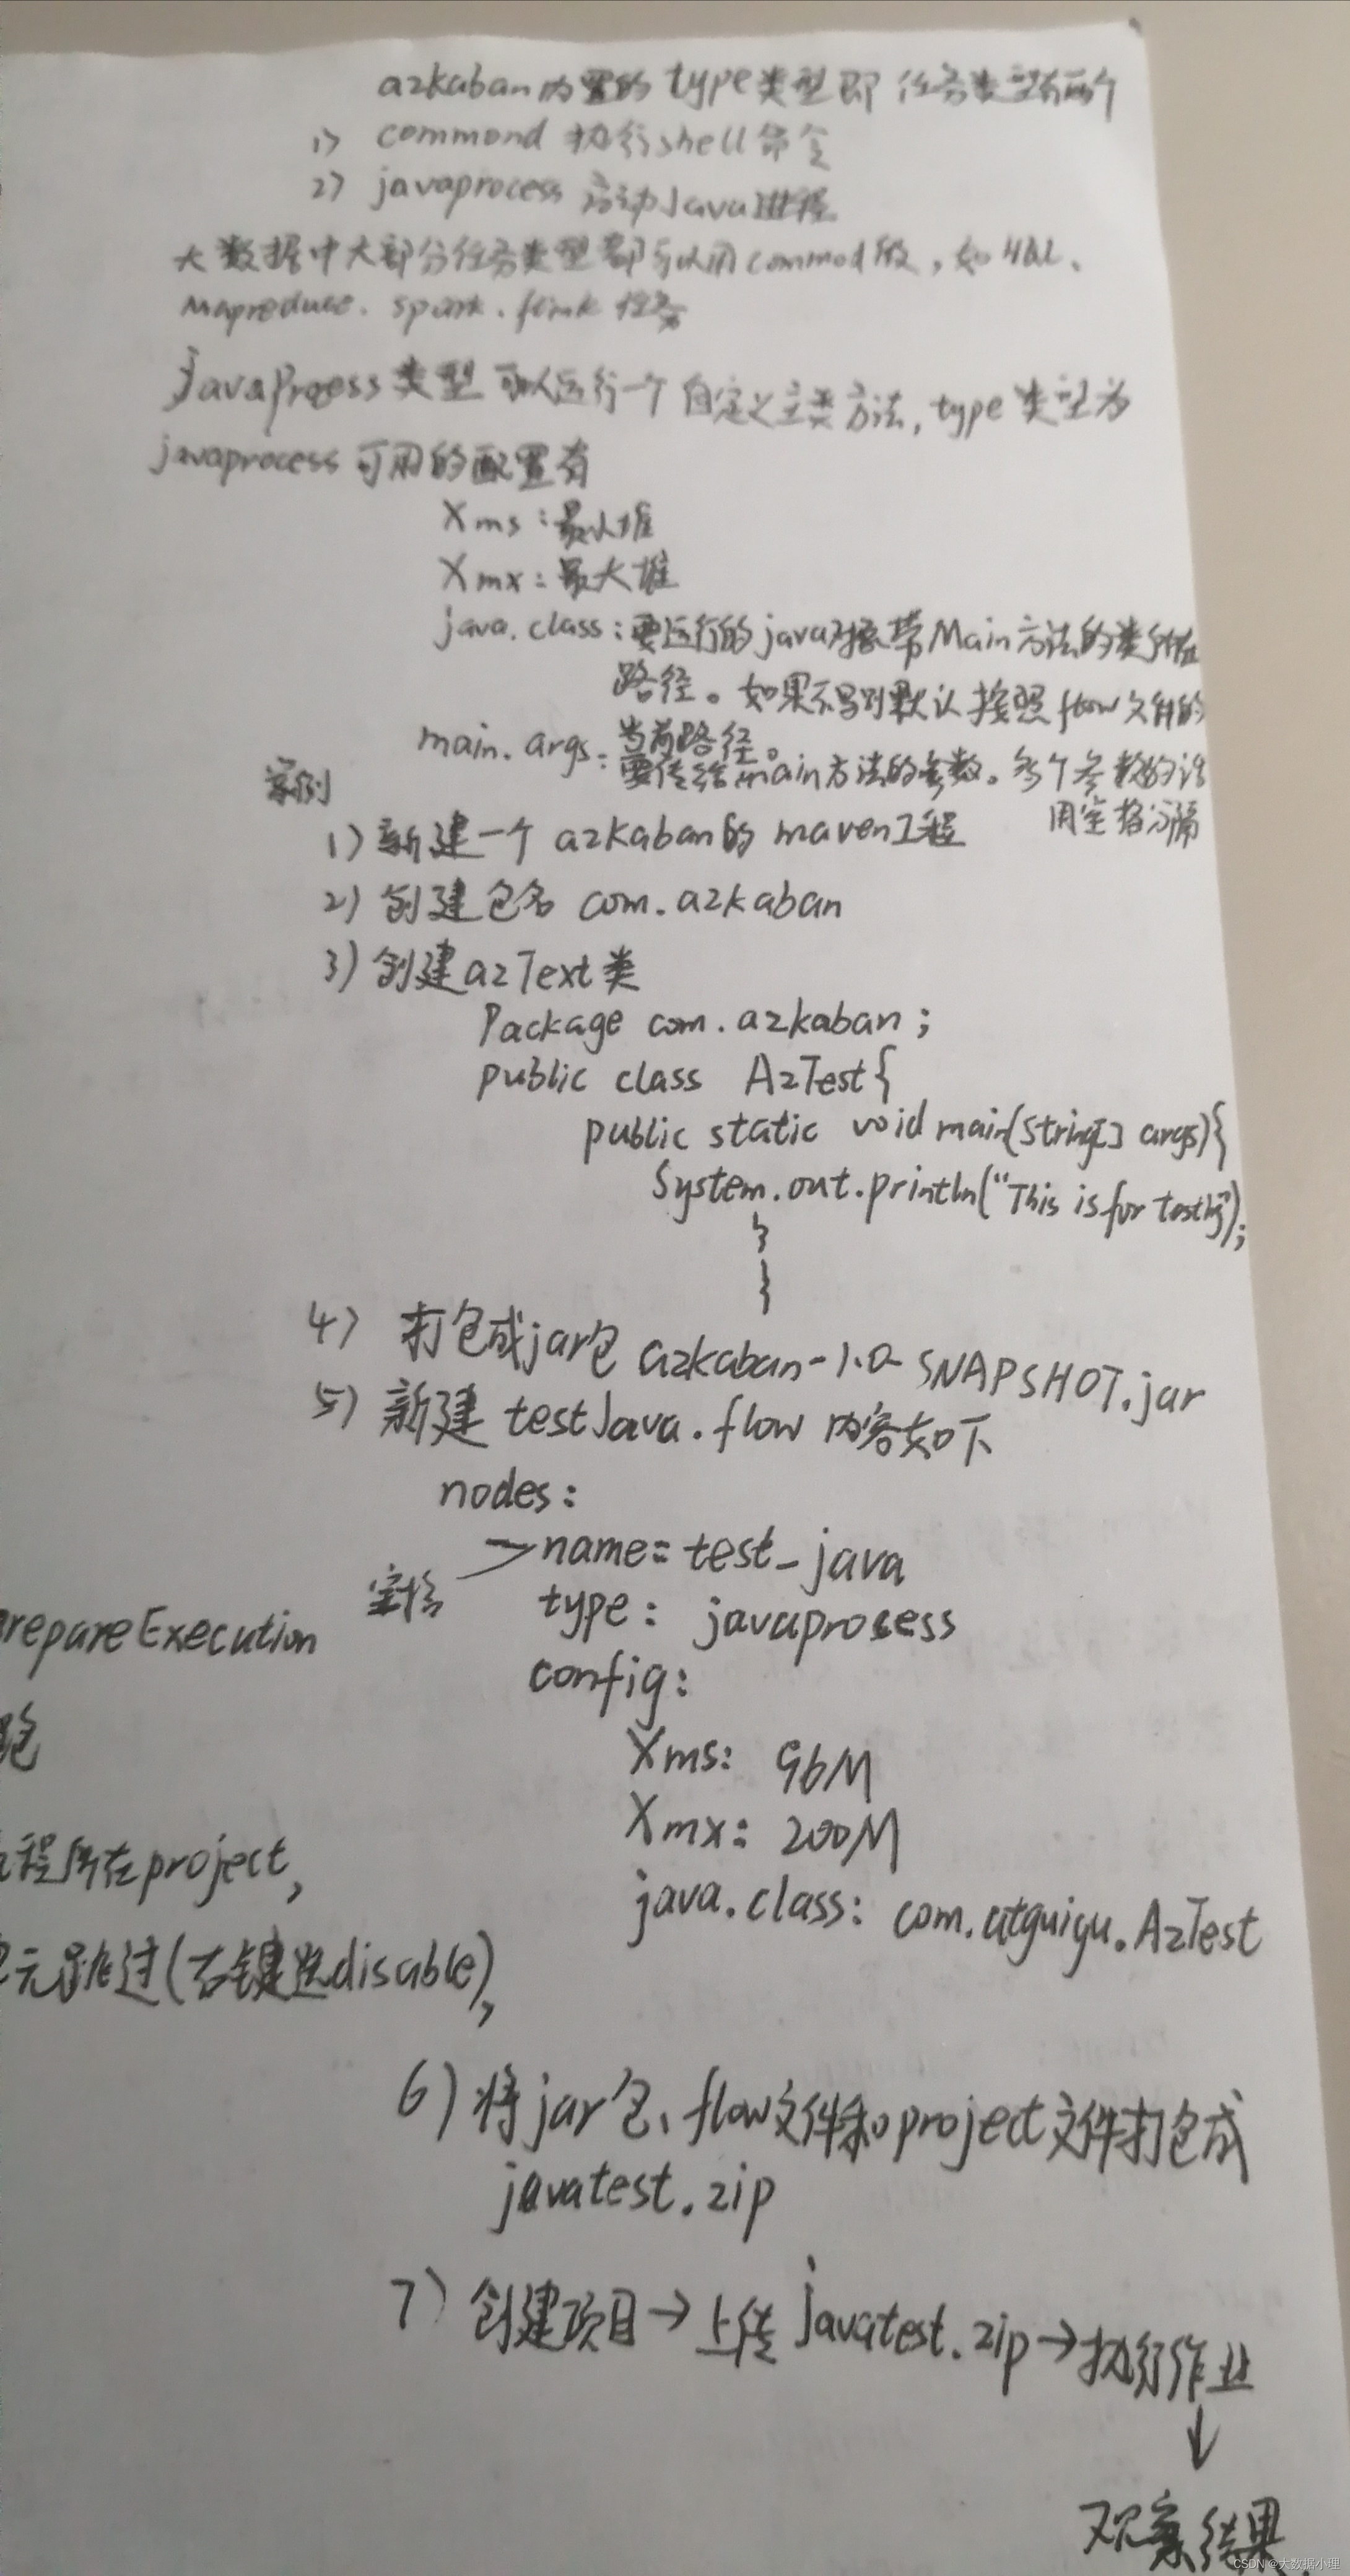 azkaban内置的type类型即任务类型有两个
1) commond 执行shell命令
2) javaprocess 启动Java进程
大数据中大部分任务类型都可以用commod做,如HQL、
Mapreduce、spark、flink任务
javaProcess类型可以运行一个自定义主类方法,type类型为
javaprocess可用的配置有
Xms:最小堆
Xmx:最大堆
java.class:要运行的java对象带Main方法的类所在
路径。如果不写则默认按照flow文件的
当前路径。
main.args:要传给main方法的参数。多个参数的话
用空格分隔
案例
1) 新建一个azkaban的maven工程
2) 创建包名 com.azkaban
3) 创建azText类
Package com.azkaban;
public class AzTest{
public static void main(String[] args){
System.out.println("This is for testing");
}
}
4) 打包成jar包 azkaban-1.0-SNAPSHOT.jar
5) 新建 testJava.flow 内容如下
nodes:
name=test_java
空格
type: javaprocess
config:
Xms: 96M
Xmx: 200M
java.class: com.atguigu.AzTest
repareExecution
跑
程所在project,
元跳过(右键选disable),
6) 将jar包、flow文件和project文件打包成
javatest.zip
7) 创建项目→上传javatest.zip→执行作业
↓
观察结果
CSDN @大数据小理